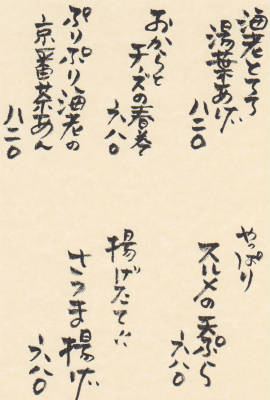 海老とろろ
湯葉あげ
八二〇
おからと
チーズの春巻
六八〇
ぷりぷり海老の
京番茶あん
八二〇
やっぱり
スルメの天ぷら
六八〇
揚げたて!!
さつま揚げ
六八〇